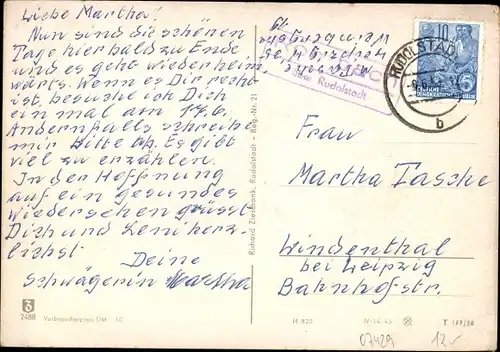 Liebe Martha!
Nun sind die schönen
Tage hier bald zu Ende
und es geht wieder heim,
wärts. Wenn es Dir recht
ist, besuche ich Dich
einmal am 17.6.
Andernfalls schreibe
mir bitte ab. Es gibt
viel zu erzählen.
In der Hoffnung
auf ein gesundes
wiedersehen grüsst
Dich und Leni herz-
lichst
Deine
Schwägerin Martha
2488 Verbraucherpreis DM 10
Richard Zieschank, Rudolstadt - Reg.-Nr. 21
Rudolstadt
RUDOLSTADT
b
10
Frau
Martha Tasche
Windenthal
bei Leipzig
Bahnhofstr.
H 820 IV-14-45 T 177/58
07429 12